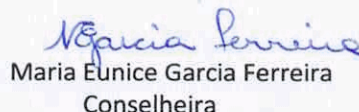 NGarcia Ferreira
Maria Eunice Garcia Ferreira
Conselheira